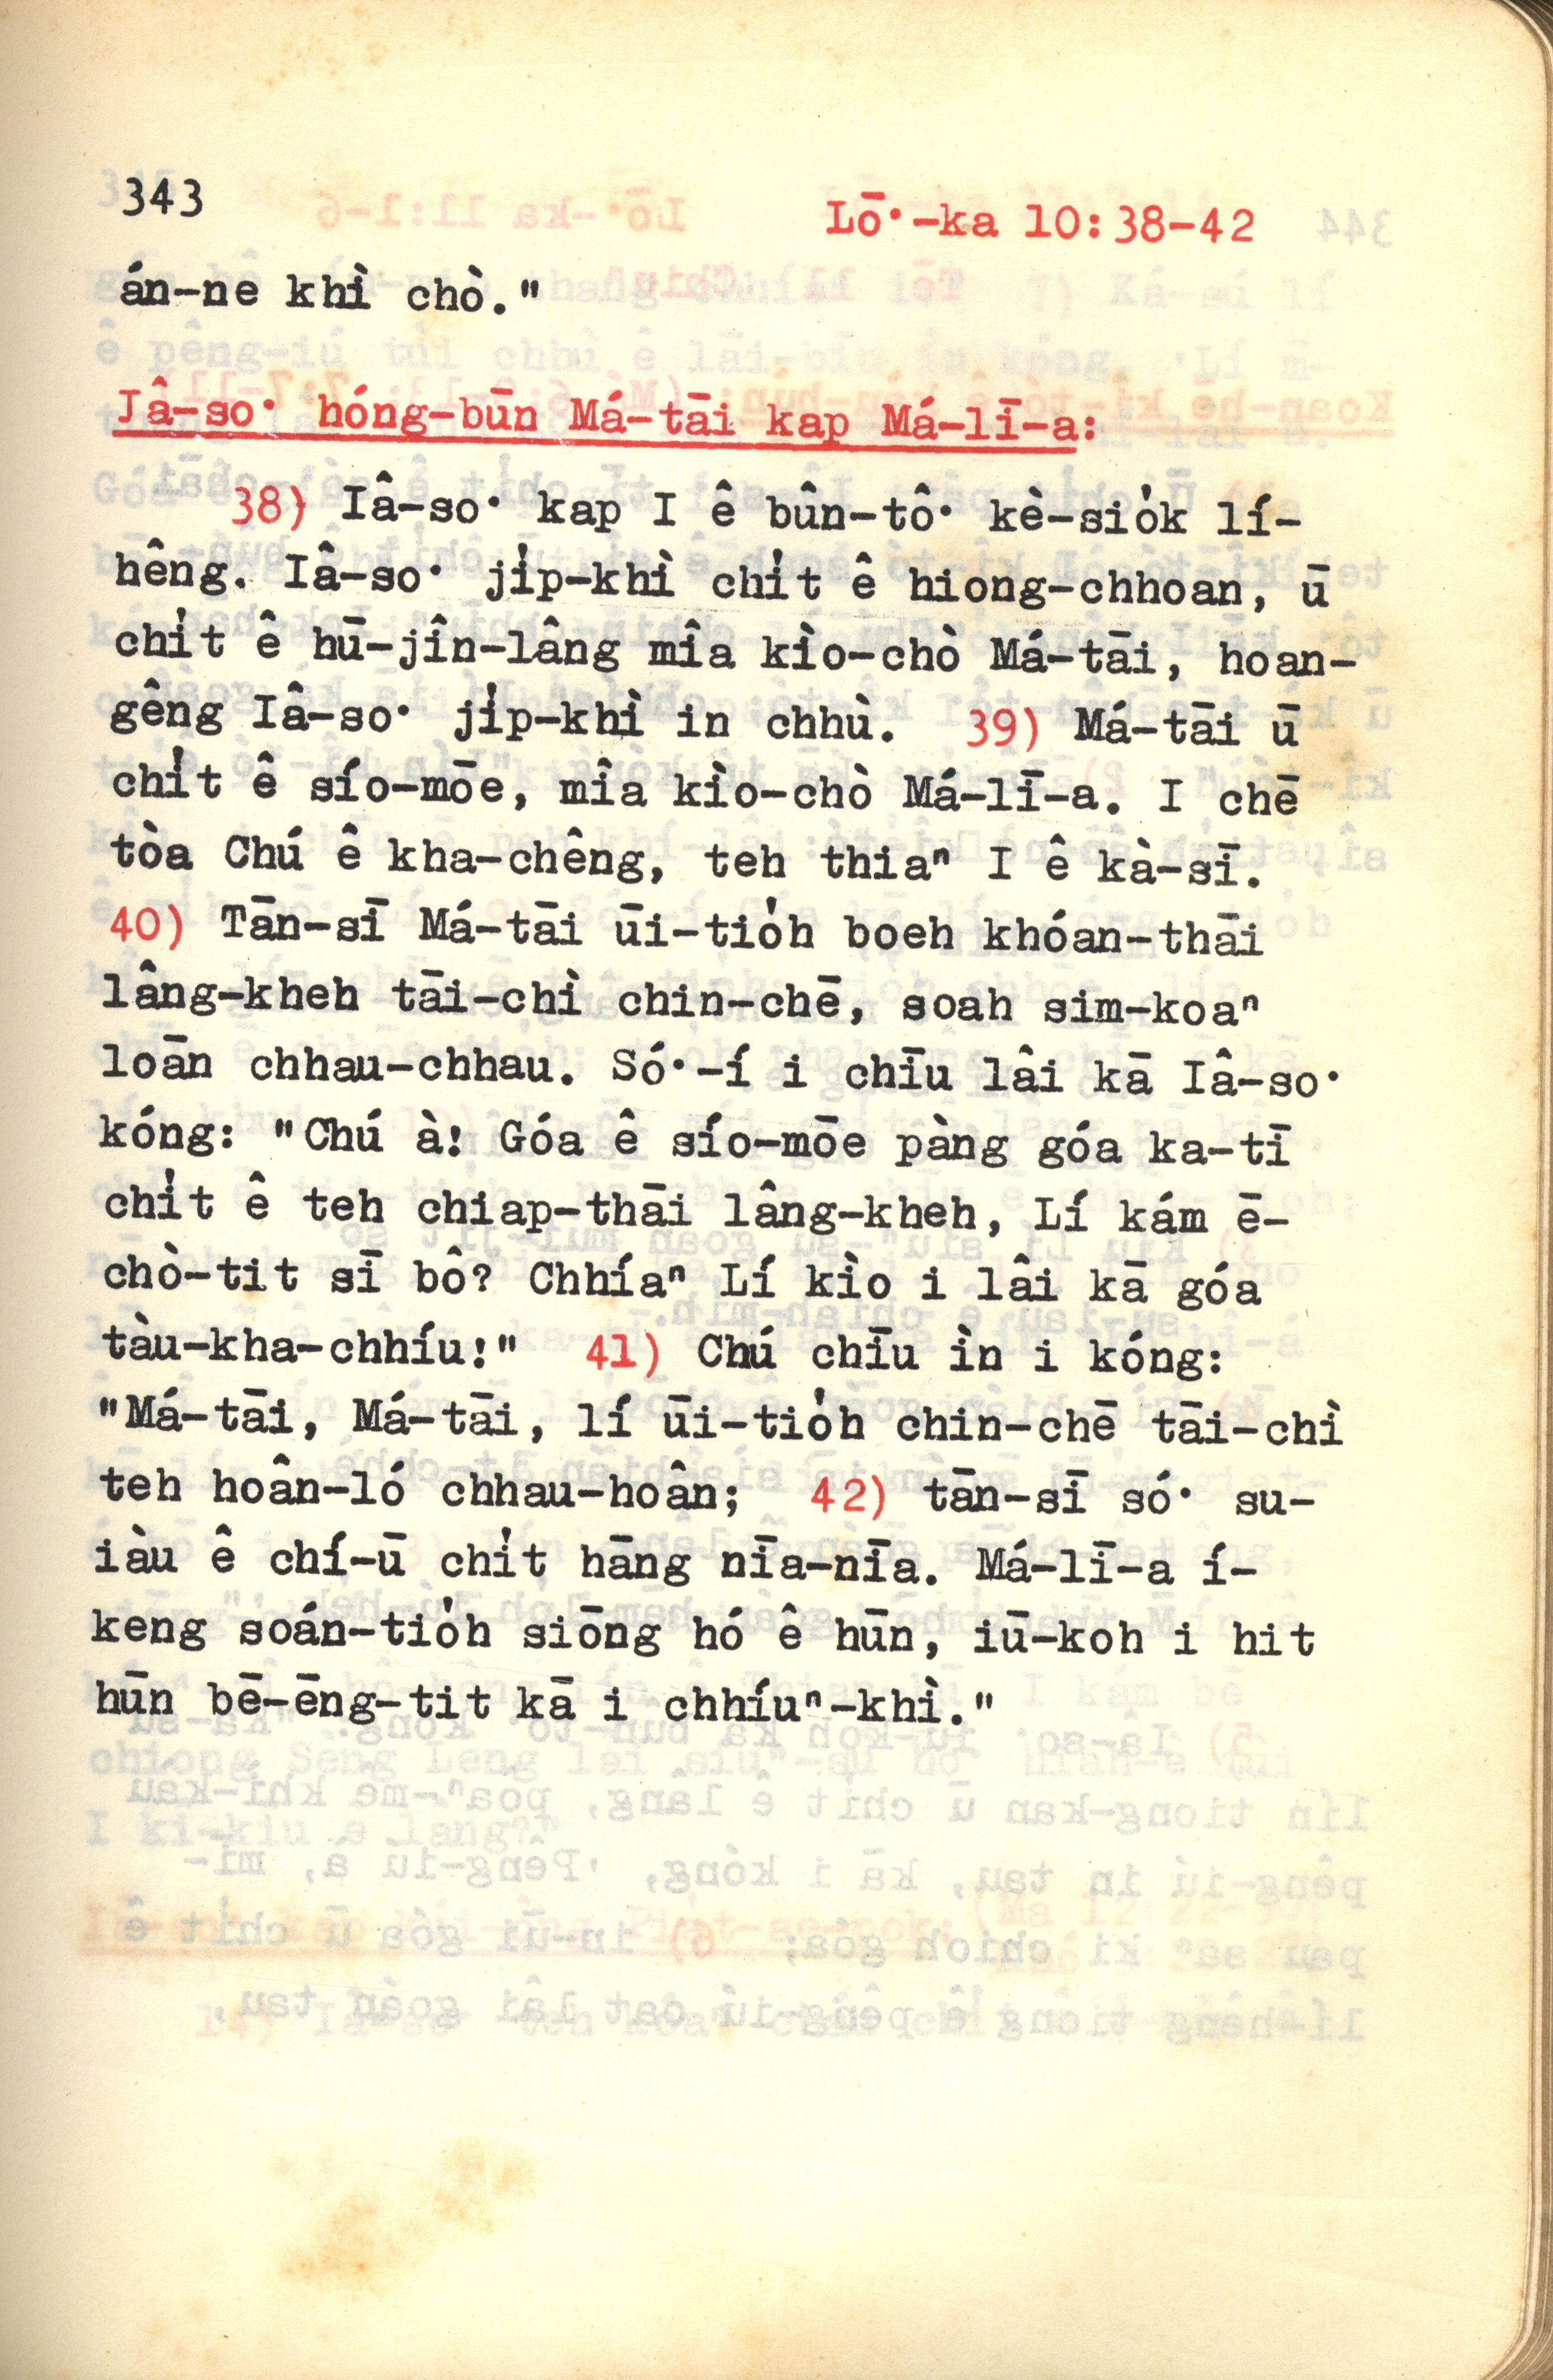 343
Lō͘-ka 10:38-42
án-ne khì chò."
Iâ-so͘ hóng-būn Má-tāi kap Má-lī-a:
38) Iâ-so͘ kap I ê bûn-tô͘ kè-sio̍k lí-
hêng. Iâ-so͘ ji̍p-khì chi̍t ê hiong-chhoan, ū
chi̍t ê hū-jîn-lâng mîa kìo-chò Má-tāi, hoan-
gêng Iâ-so͘ ji̍p-khì in chhù. 39) Má-tāi ū
chi̍t ê sío-mōe, mîa kìo-chò Má-lī-a. I chē
tòa Chú ê kha-chêng, teh thiaⁿ I ê kà-sī.
40) Tān-sī Má-tāi ūi-tio̍h boeh khóan-thāi
lâng-kheh tāi-chì chin-chē, soah sim-koaⁿ
loān chhau-chhau. Só͘-í i chīu lâi kā Iâ-so͘
kóng: "Chú à! Góa ê sío-mōe pàng góa ka-tī
chi̍t ê teh chiap-thāi lâng-kheh, Lí kám ē-
chò-tit sī bô? Chhíaⁿ Lí kìo i lâi kā góa
tàu-kha-chhíu!" 41) Chú chīu ìn i kóng:
"Má-tāi, Má-tāi, lí ūi-tio̍h chin-chē tāi-chì
teh hoân-ló chhau-hoân; 42) tān-sī só͘ su-
iàu ê chí-ū chi̍t hāng nīa-nīa. Má-lī-a í-
keng soán-tio̍h siōng hó ê hūn, iū-koh i hit
hūn bē-ēng-tit kā i chhíuⁿ-khì."